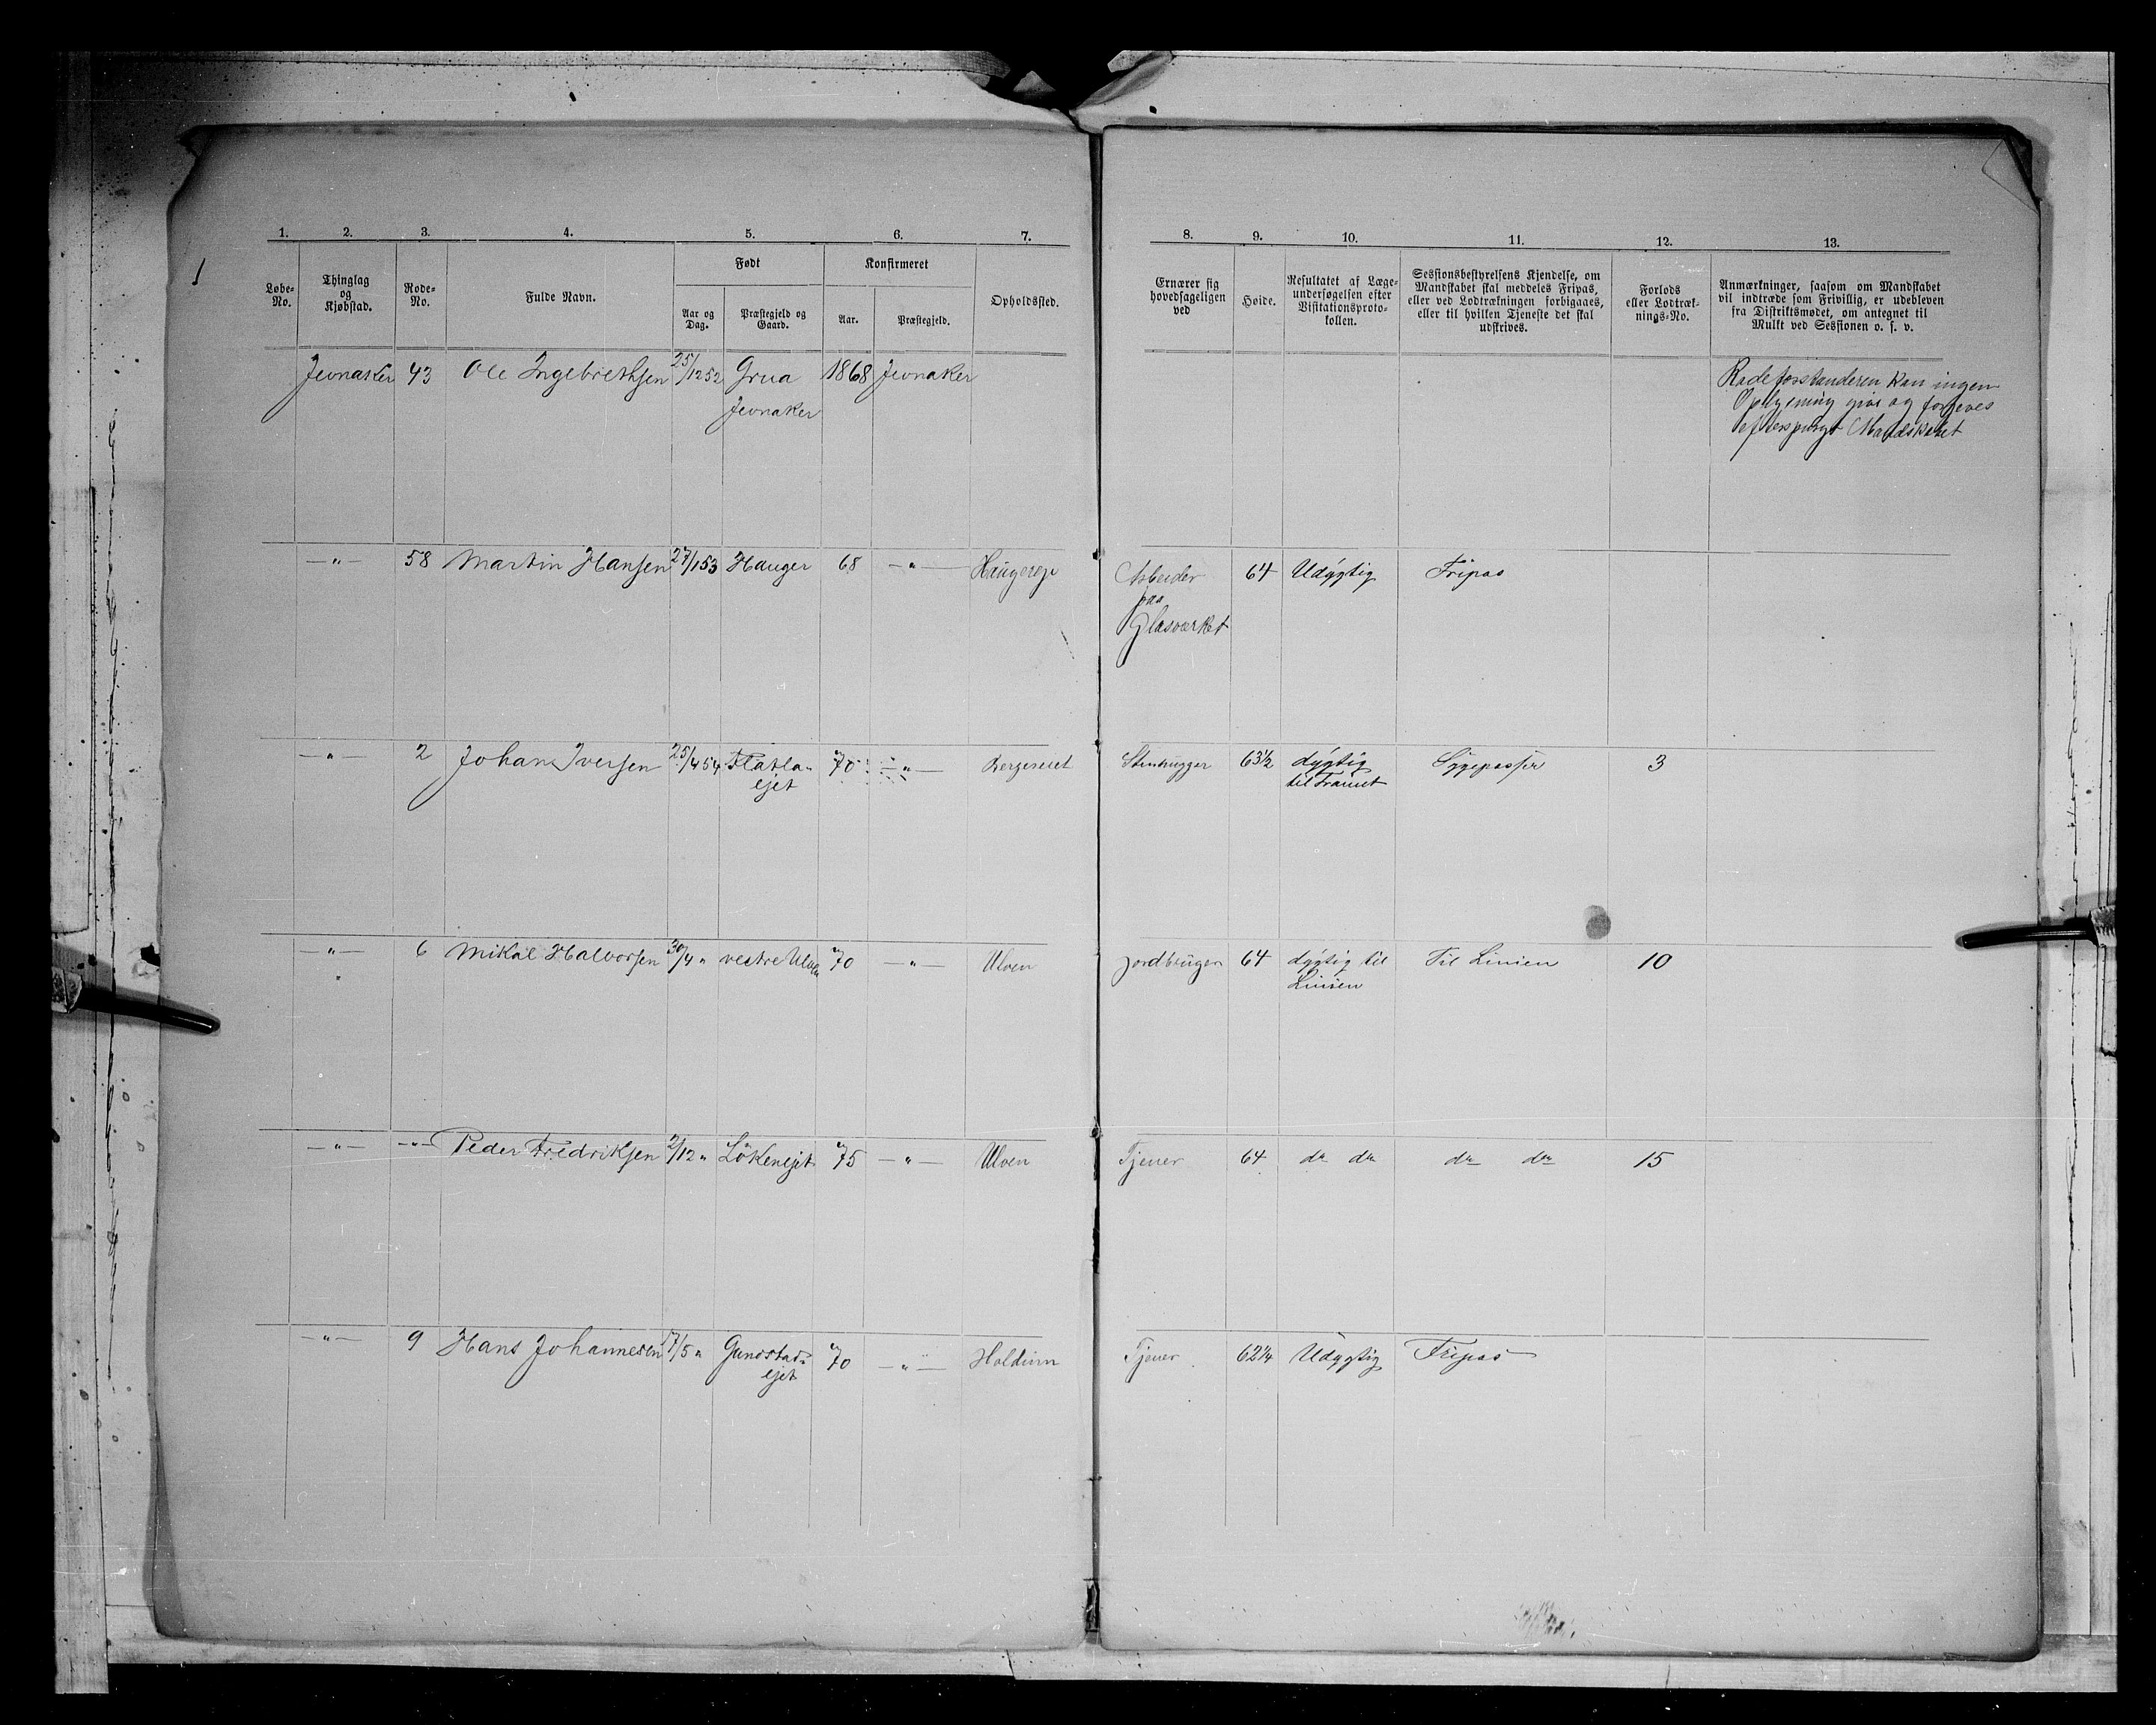 1
1. 2. 3. 4. 5. 6. 7.
Løbe-No. Thinglag og Kjøbstad. Rode-No. Fulde Navn. Født Konfirmeret Opholdssted.
Aar og Dag. Præstegjeld og Gaard. Aar. Præstegjeld.
8. 9. 10. 11. 12. 13.
Ernærer sig hovedsageligen ved
Høide.
Resultatet af Læge-
undersøgelsen efter
Visitationsproto-
kollen.
Sessionsbestyrelsens Kjendelse, om
Mandskabet skal meddeles Fripas,
eller ved Lodtrækningen forbigaaes,
eller til hvilken Tjeneste det skal
udskrives.
Forlods
eller Lodtræk-
nings-No.
Anmærkninger, saasom om Mandskabet
vil indtræde som Frivillig, er udebleven
fra Distriktsmødet, om antegnet til
Mulkt ved Sessionen o. s. v.
Jevnaker 43 Ole Ingebrethsen 25/12 52 Grua 1868 Jevnaker
Jevnaker
Rodeforstanderen kan ingen
Oplysning give og forgjeves
efterspurgt Mandskabet
—"— 58 Martin Hansen 27/1 53 Hauger 68 —"— Haugereje
Arbeider 64 Udygtig Fripas
paa
Glasværket
—"— 2 Johan Iversen 25/4 54 Flatla-
ejet
" 70 —"— Bergereiet
Stenhugger 63½ dygtig Sygepasser 3
til Trainet
—"— 6 Mikal Halvorsen 30/4 " vestre Ulven " 70 —"— Ulven
Jordbruger 64 dygtig til Til Linien 10
Linien
—"— —"— Peder Fredriksen 2/12 " Lökenejet " 75 —"— Ulven
Tjener 64 do do do do 15
—"— 9 Hans Johannesen 17/5 " Gunstad-
ejet
" 70 —"— Holdum
Tjener 62¼ Udygtig Fripas